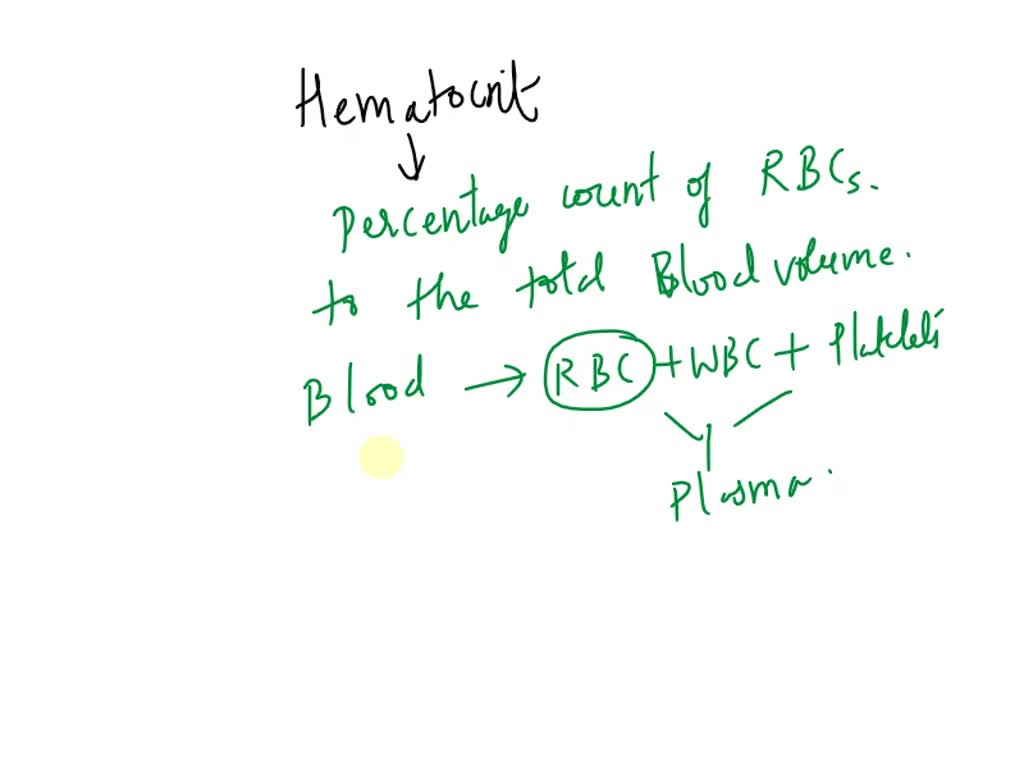 Hematocrit
↓
Percentage count of RBCs.
to the total Blood volume.
Blood → RBC + WBC + Platelets
Plasma.